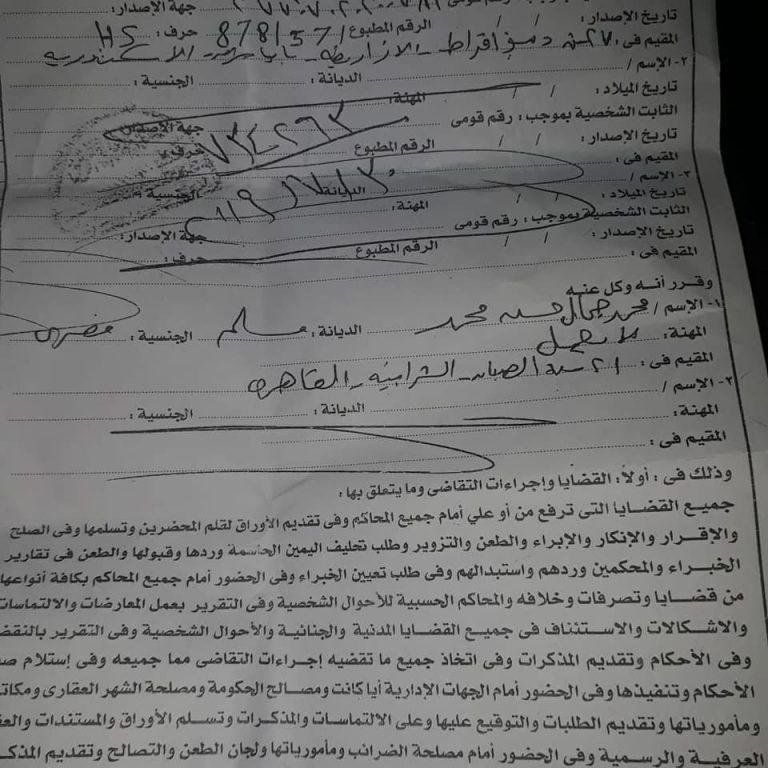 تاريخ الإصدار : / / جهة الإصدار :
الرقم المطبوع / 878157 حرف : HS
المقيم فى :
٢- الإسم / الديانة : الجنسية :
تاريخ الميلاد : / / المهنة :
الثابت الشخصية بموجب : رقم قومى جهة الإصدار :
تاريخ الإصدار : / / الرقم المطبوع حرف :
المقيم فى :
٣- الإسم / الديانة : الجنسية :
تاريخ الميلاد : / / المهنة :
الثابت الشخصية بموجب : رقم قومى جهة الإصدار :
تاريخ الإصدار : / / الرقم المطبوع حرف :
المقيم فى :
وقرر أنه وكل عنه
١- الإسم / محمد جمال حسن محمد الديانة : مسلم الجنسية : مصرى
المهنة : لا يعمل
المقيم فى : الشرابية - القاهرة
٢- الإسم / الديانة : الجنسية :
المهنة :
المقيم فى :
وذلك فى : أولاً : القضايا وإجراءات التقاضى وما يتعلق بها :
جميع القضايا التى ترفع من أو علي أمام جميع المحاكم وفى تقديم الأوراق لقلم المحضرين وتسلمها وفى الصلح
والإقرار والإنكار والإبراء والطعن والتزوير وطلب تحليف اليمين الحاسمة وردها وقبولها والطعن فى تقارير
الخبراء والمحكمين وردهم واستبدالهم وفى طلب تعيين الخبراء وفى الحضور أمام جميع المحاكم بكافة أنواعها
من قضايا وتصرفات وخلافه والمحاكم الحسبية للأحوال الشخصية وفى التقرير بعمل المعارضات والالتماسات
والاشكالات والاستئناف فى جميع القضايا المدنية والجنائية والأحوال الشخصية وفى التقرير بالنقض
وفى الأحكام وتقديم المذكرات وفى اتخاذ جميع ما تقضيه إجراءات التقاضى مما جميعه وفى إستلام
الأحكام وتنفيذها وفى الحضور أمام الجهات الإدارية أيا كانت ومصالح الحكومة ومصلحة الشهر العقارى
ومأمورياتها وتقديم الطلبات والتوقيع عليها وعلى الالتماسات والمذكرات وتسلم الأوراق والمستندات
العرفية والرسمية وفى الحضور أمام مصلحة الضرائب ومأمورياتها ولجان الطعن والتصالح وتقديم